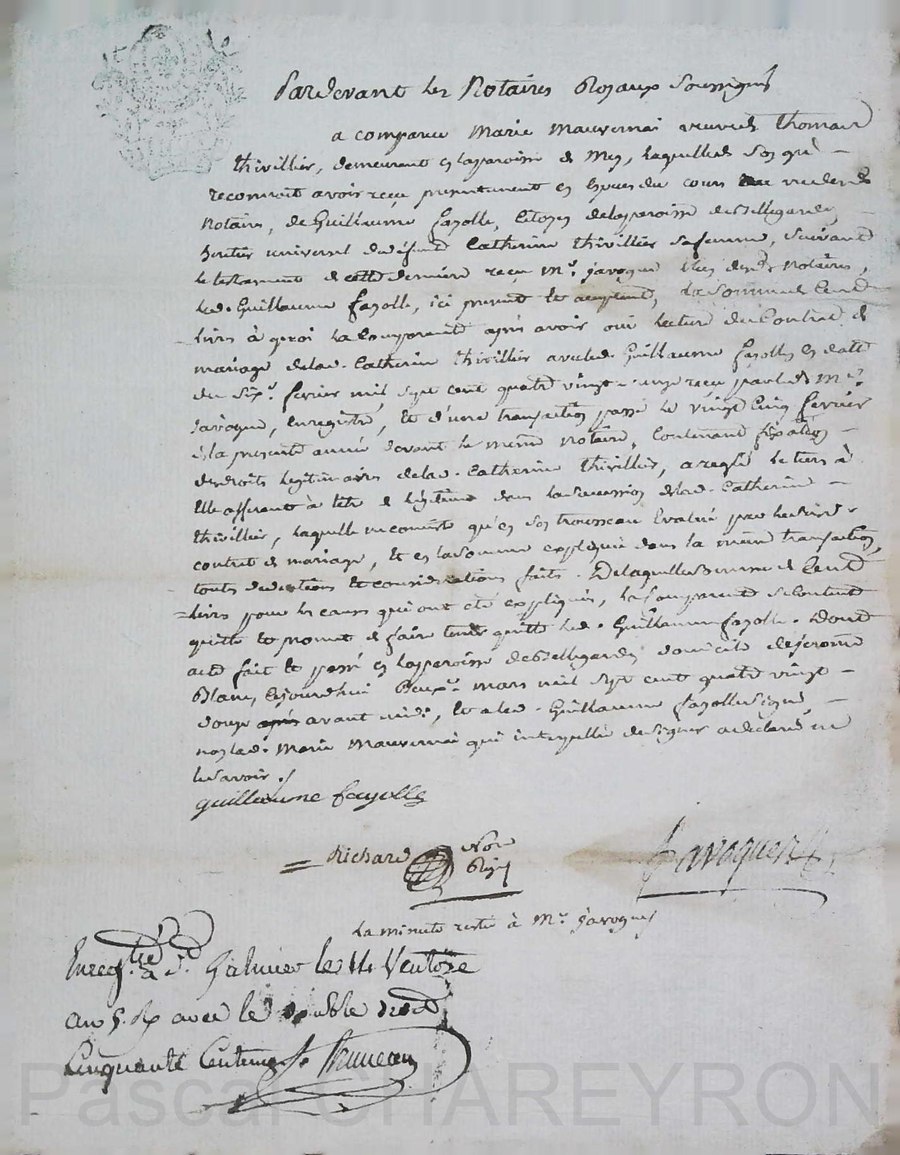 Pardevant les Notaires Royaux soussignés
a comparu Marie Mauvernai veuve de Thomas
thivillier, demeurant en la paroisse de
reconnoit avoir reçu presentement en especes du cours vu desd.
Notaires, de Guillaume fayolle, Citoyen de la paroisse de Bellegarde,
heritier universel de defunte Catherine thivillier sa femme, suivant
le testament de cette derniere reçu Me. javogue l'un desdits Notaires,
led. Guillaume fayolle, ici present et acceptant, la somme de Cent
livres à quoi la Comparante après avoir oui lecture du Contrat de
mariage de lad. Catherine thivillier avec led. Guillaume fayolle en date
du six. fevrier mil sept cent quatre vingt-onze reçu par led. Me.
javogue, Enregistré, Et d'une transaction passé le vingt cinq fevrier
de la presente année devant le même notaire, Contenant fixation
des droits legitimaires de lad. Catherine thivillier, a reglé le tiers à
Elle afferant à titre de legitime dans la succession de lad. Catherine
thivillier, laquelle consiste qu'en son trousseau Evalué par led.
contrat de mariage, Et en la somme expliquée dans la même transaction,
toutes deductions Et considerations faites. De laquelle somme de Cent
livres pour les causes qui ont été expliquées, la Comparante se Contente
quitte et promet de faire tenir quitte led. Guillaume fayolle. Dont
acte fait et passé en la paroisse de Bellegarde domicile de jerome
Blanc, Cejourd'hui Deux. mars mil sept cent quatre vingt-
douze après avant midi, Et a led. Guillaume fayolle signé,
non lad. Marie Mauvernai qui interpellée de signer a déclaré ne
le savoir ./.
guillaume fayolle
Richard Nore Royal
Javogue
La minute reste à Me. Javogue
Enregtré à St. Galmier le 14 Ventose
an 5. R avec le double droit
Cinquante Centimes Bruneau
Pascal CHAREYRON